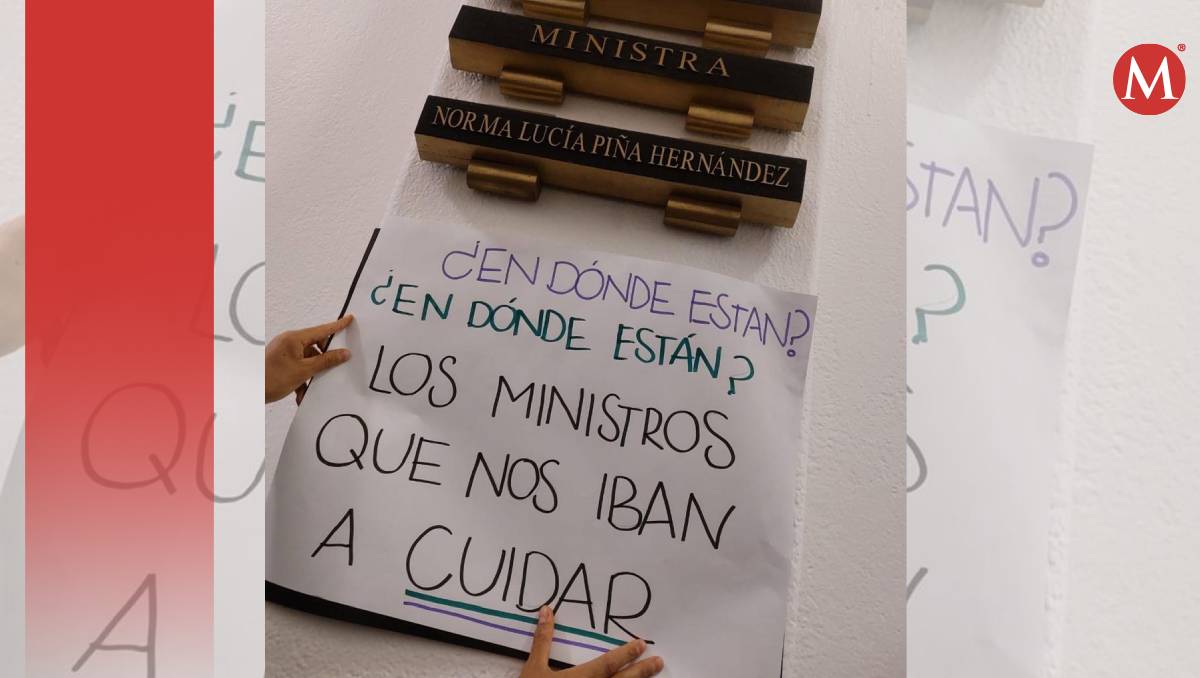 MINISTRA
NORMA LUCÍA PIÑA HERNÁNDEZ
¿EN DÓNDE ESTAN?
¿EN DÓNDE ESTÁN?
LOS MINISTROS
QUE NOS IBAN
A CUIDAR
M®